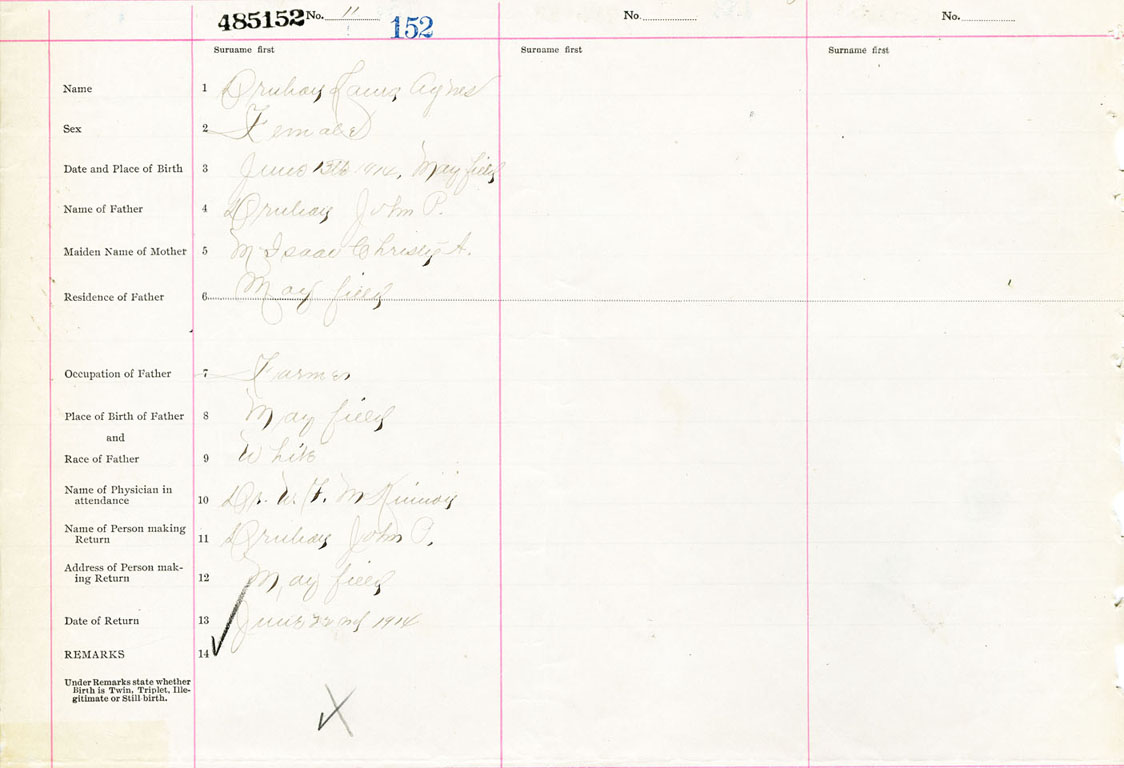 485152 No. 11 152 No. No.
Surname first Surname first Surname first
Name 1 Druhay Agnes
Sex 2 Female
Date and Place of Birth 3 June 15th 1914, Mayfield
Name of Father 4 Druhay John P.
Maiden Name of Mother 5 McIsaac Christy A.
Residence of Father 6 Mayfield
Occupation of Father 7 Farmer
Place of Birth of Father 8 Mayfield
and
Race of Father 9 White
Name of Physician in
attendance 10 Dr. McKinnon
Name of Person making
Return 11 Druhay John P.
Address of Person mak-
ing Return 12 Mayfield
Date of Return 13 June 22nd 1914
REMARKS 14
Under Remarks state whether
Birth is Twin, Triplet, Ille-
gitimate or Still-birth.